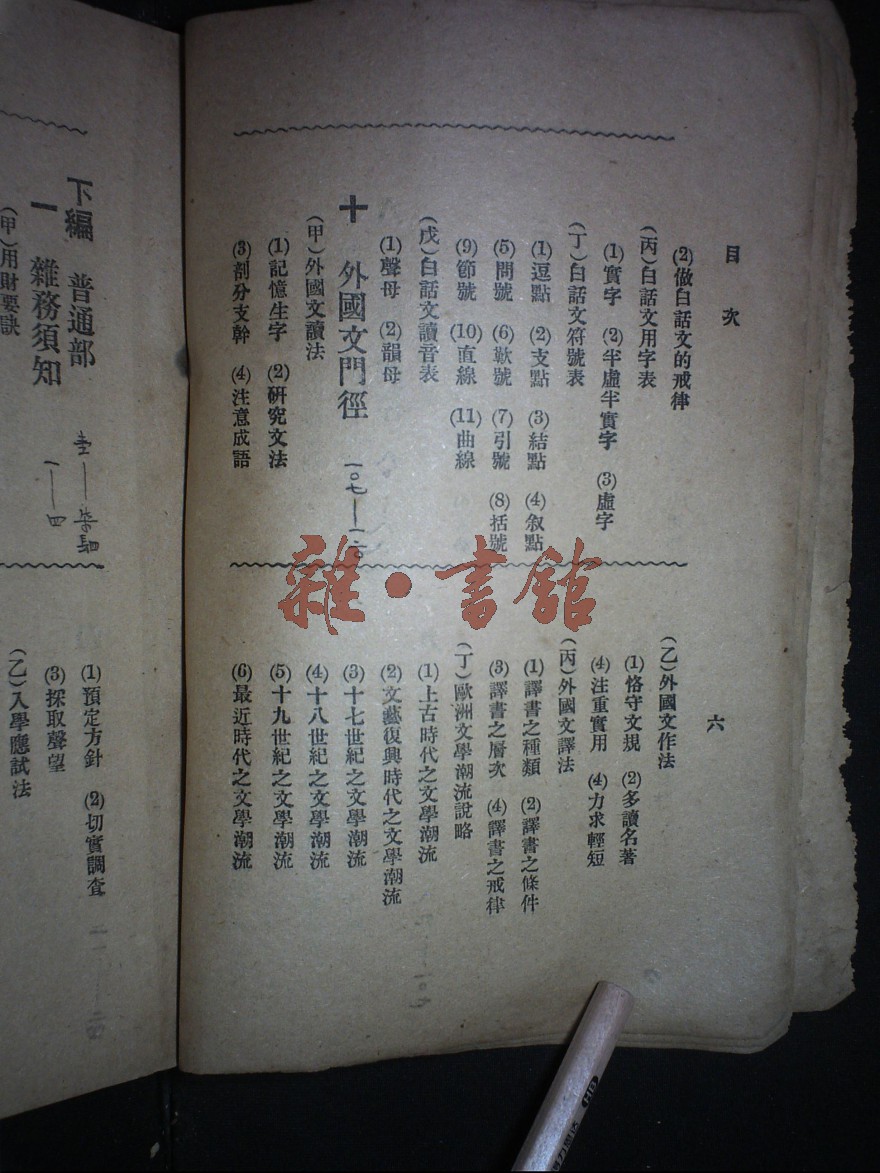 目次
六
(2)做白話文的戒律
(丙)白話文用字表
(1)實字 (2)半虛半實字 (3)虛字
(丁)白話文符號表
(1)逗點 (2)支點 (3)結點 (4)敘點
(5)問號 (6)歎號 (7)引號 (8)括號
(9)節號 (10)直線 (11)曲線
(戊)白話文讀音表
(1)聲母 (2)韻母
十 外國文門徑 一〇七—一一〇
(甲)外國文讀法
(1)記憶生字 (2)研究文法
(3)剖分支幹 (4)注意成語
(乙)外國文作法
(1)恪守文規 (2)多讀名著
(4)注重實用 (4)力求輕短
(丙)外國文譯法
(1)譯書之種類 (2)譯書之條件
(3)譯書之層次 (4)譯書之戒律
(丁)歐洲文學潮流說略
(1)上古時代之文學潮流
(2)文藝復興時代之文學潮流
(3)十七世紀之文學潮流
(4)十八世紀之文學潮流
(5)十九世紀之文學潮流
(6)最近時代之文學潮流
下編 普通部
一 雜務須知 一—四
(甲)用財要訣
(1)預定方針 (2)切實調查
(3)採取聲望
(乙)入學應試法
雜·書館
HB